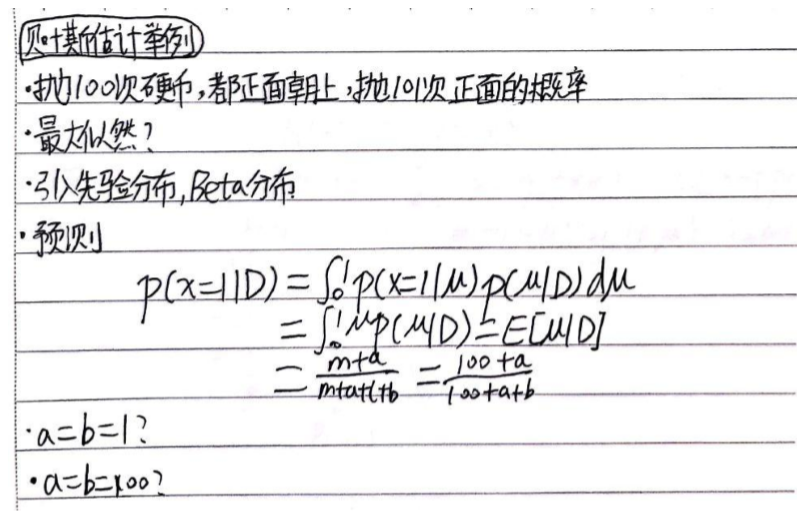 贝叶斯估计举例
·抛100次硬币,都正面朝上,抛101次正面的概率
·最大似然?
·引入先验分布,Beta分布
·预测
p(x=1|D)=∫₀¹p(x=1|μ)p(μ|D)dμ
=∫₀¹μp(μ|D)=E[μ|D]
=(m+a)/(m+a+l+b)=(100+a)/(100+a+b)
·a=b=1?
·a=b=100?